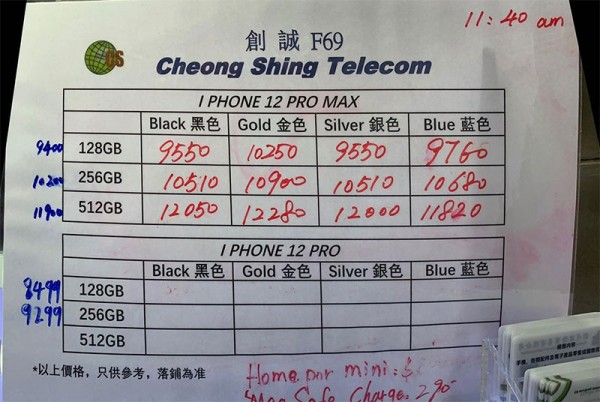 11:40 am
創誠 F69
CS
Cheong Shing Telecom
I PHONE 12 PRO MAX
Black 黑色 Gold 金色 Silver 銀色 Blue 藍色
9400 128GB 9550 10250 9550 9760
10200 256GB 10510 10900 10510 10680
11900 512GB 12050 12280 12000 11820
I PHONE 12 PRO
Black 黑色 Gold 金色 Silver 銀色 Blue 藍色
8499 128GB
9299 256GB
512GB
*以上價格，只供參考，落鋪為准
Home por mini: $
Mag Safe Charge. 290-